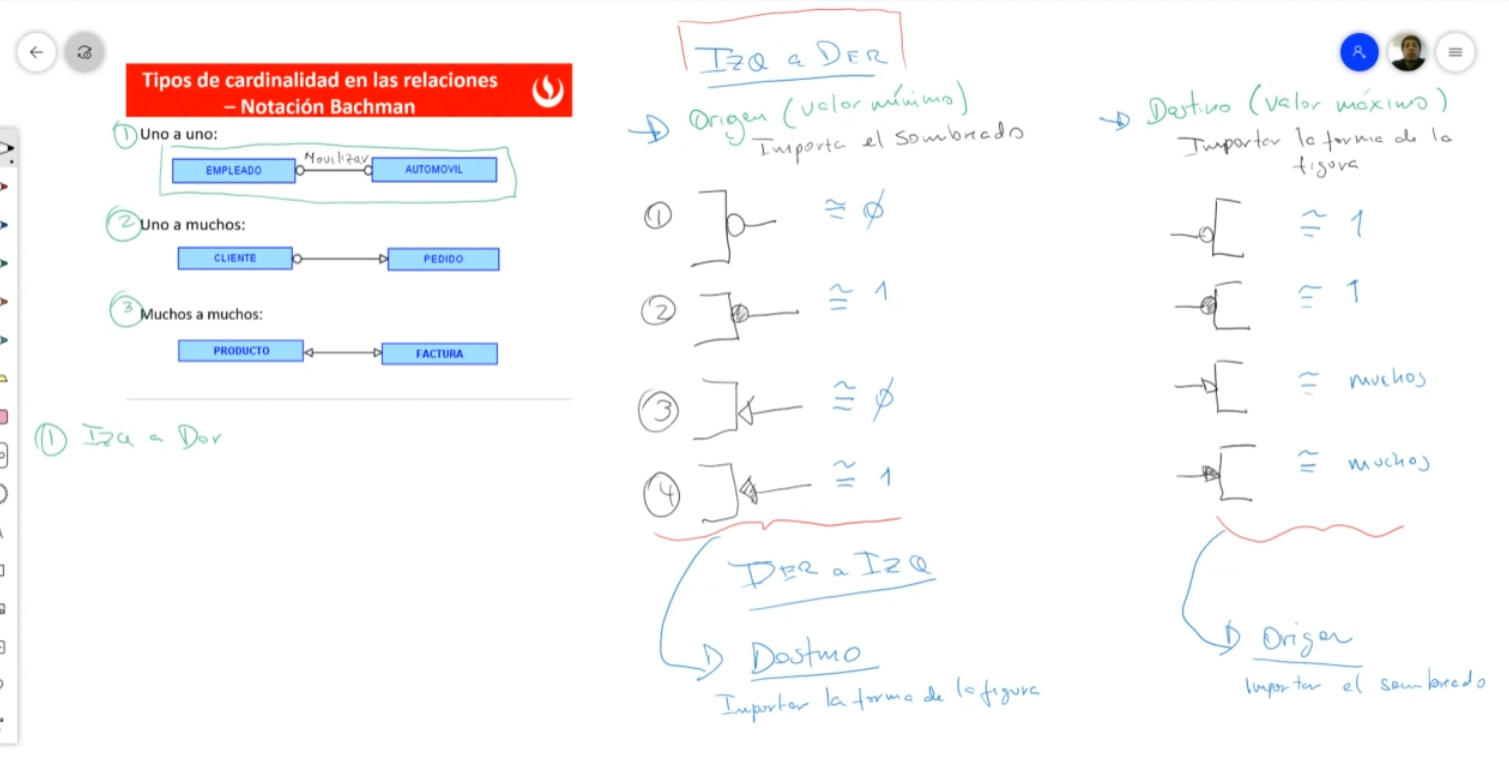 Tipos de cardinalidad en las relaciones
– Notación Bachman
① Uno a uno:
EMPLEADO
Movilizar
AUTOMOVIL
② Uno a muchos:
CLIENTE
PEDIDO
③ Muchos a muchos:
PRODUCTO
FACTURA
① IZQ a Der
IZQ a DER
Origen (valor mínimo)
Importa el sombreado
① ≅ ∅
② ≅ 1
③ ≅ ∅
④ ≅ 1
DER a IZQ
Destino
Importar la forma de la figura
Destino (valor máximo)
Importar la forma de la
figura
≅ 1
≅ 1
≅ muchos
≅ muchos
Origen
Importar el sombreado